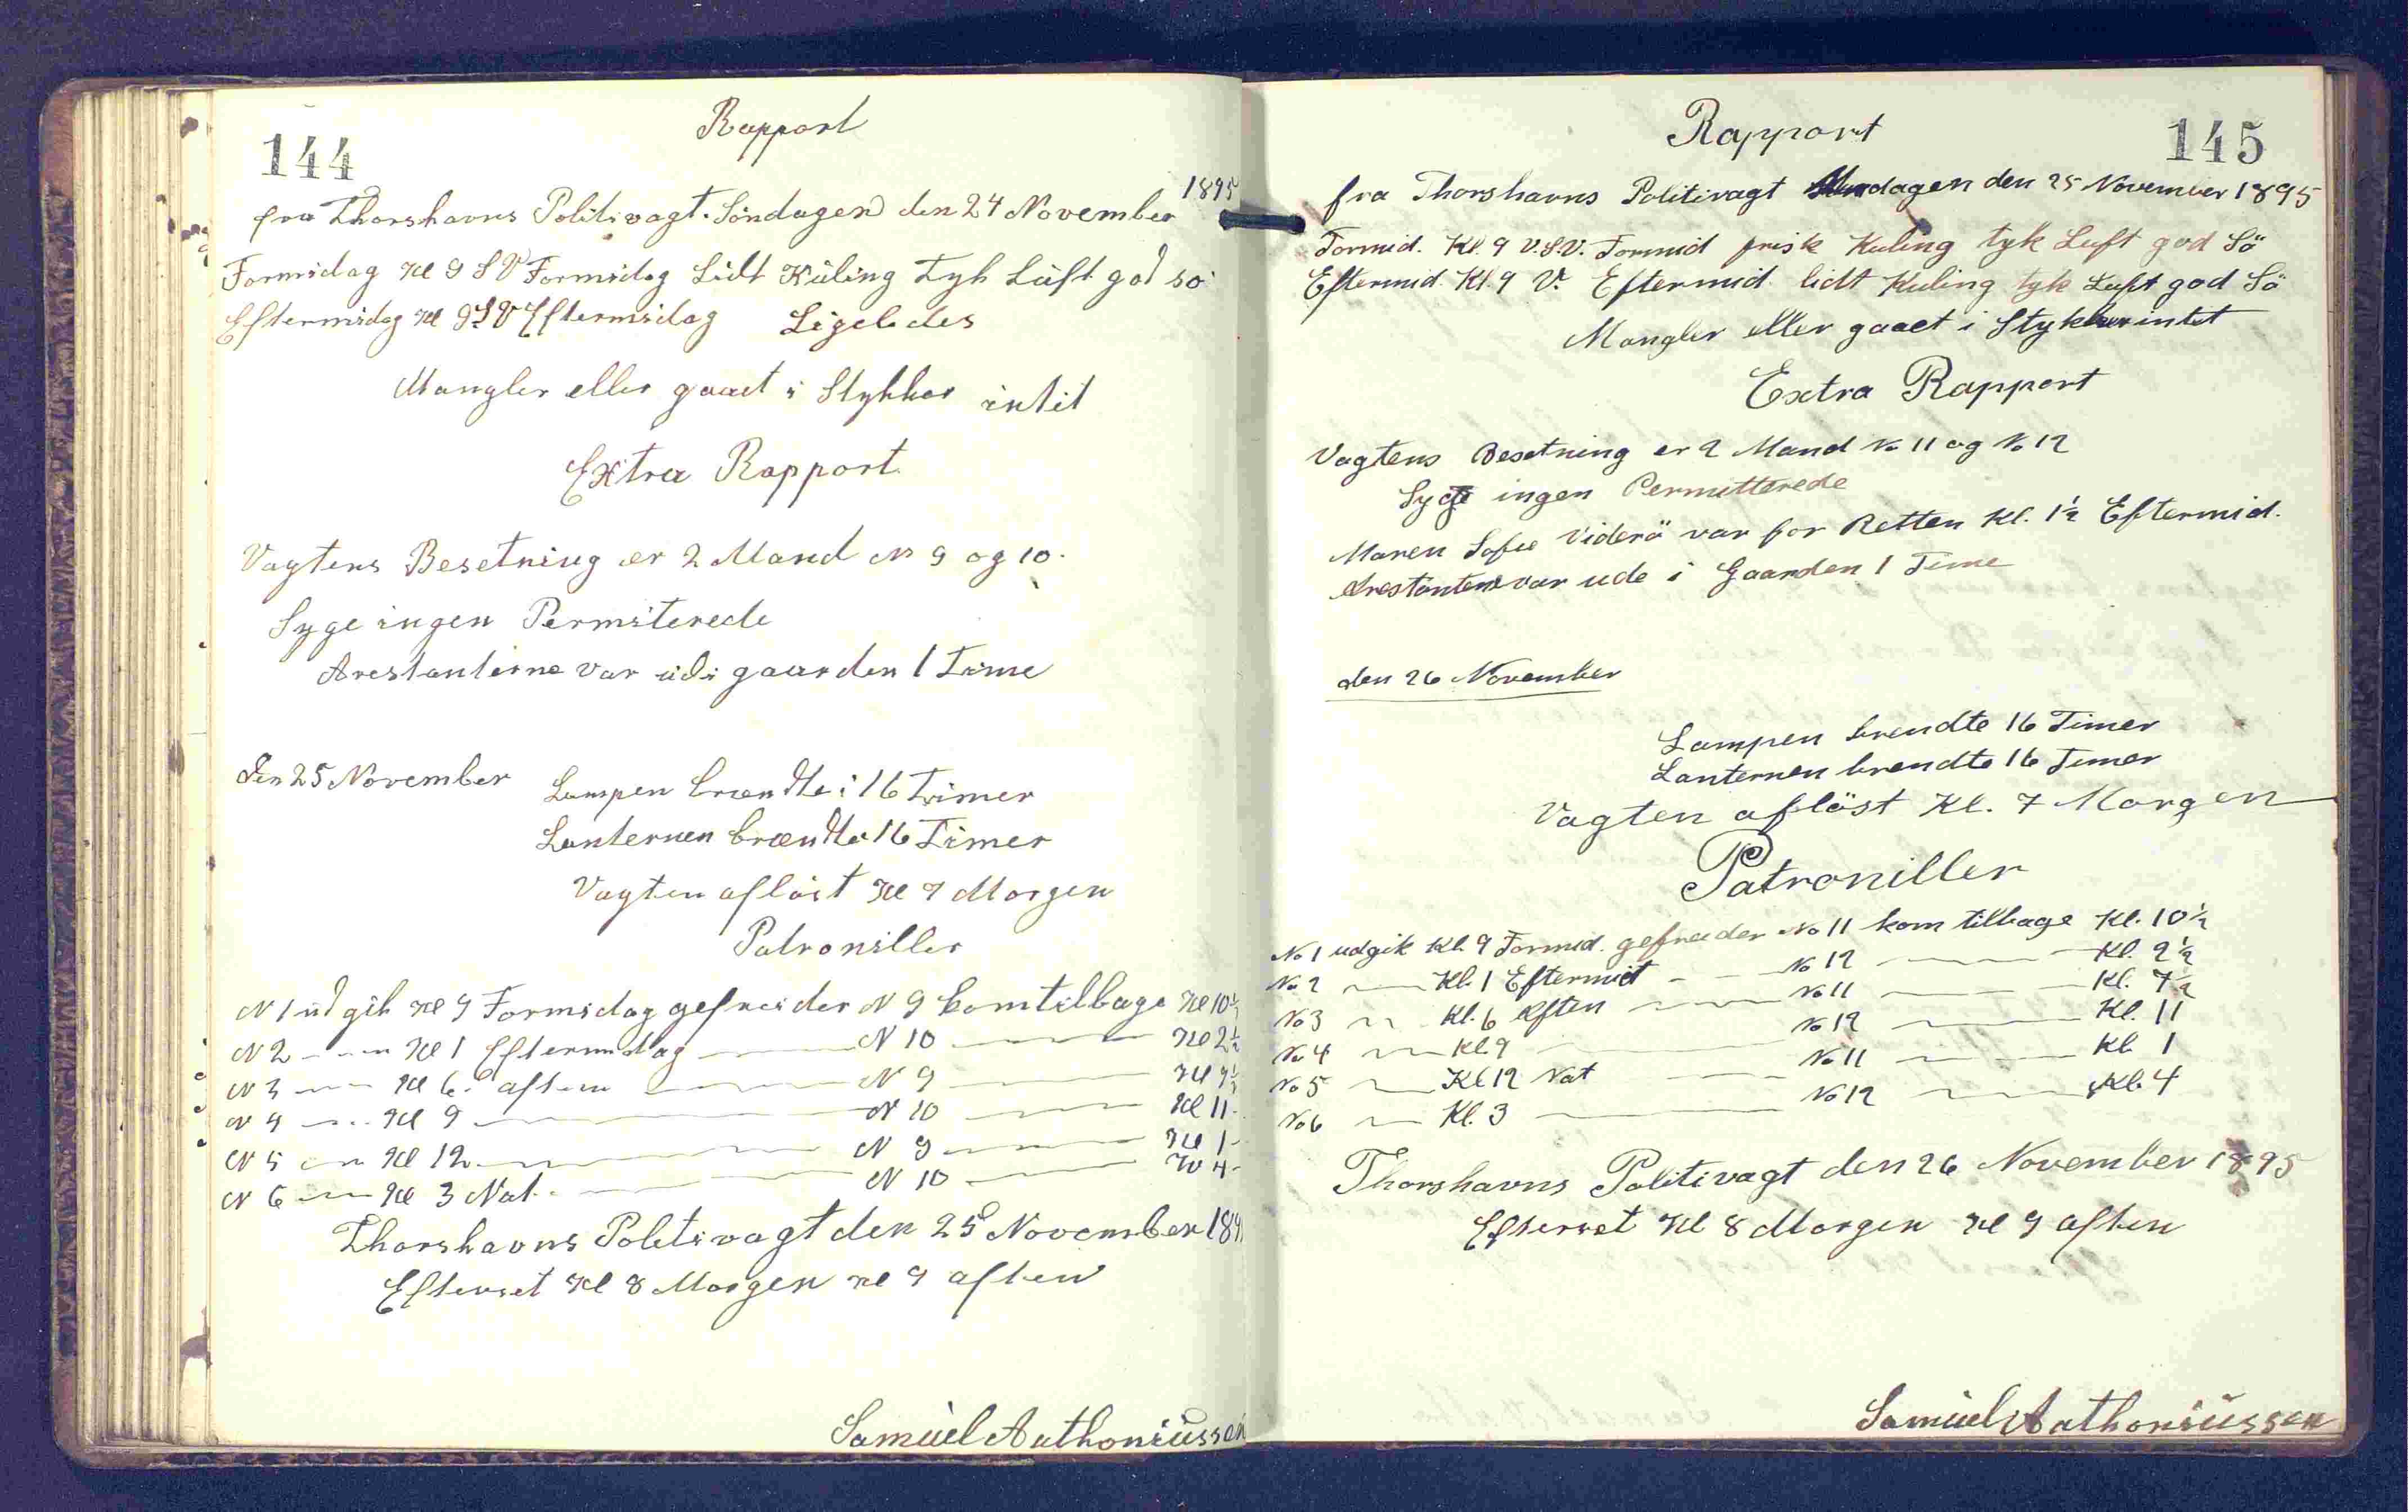 144
Rapport
1895
fra Thorshavns Politivagt. Söndagen den 24 November
Formidag Kl 9 SV Formidag Lidt Küling Tyk Lüft god sö
Eftermidag Kl 9 SV Eftermidag Ligeledes
Mangler eller gaaet i Stykker intit
Extra Rapport
Vagtens Besetning er 2 Mand N 9 og 10.
Syge ingen Permiterede
Arestanterne var üdi gaarden 1 Time
Den 25 November
Lampen brændte i 16 Timer
Lanternen brændte 16 Timer
Vagten aflöst Kl 7 Morgen
Patroniller
N 1 üdgik Kl 9 Formidag gefreider N 9 kom tilbage Kl 10½
N 2 — Kl 1 Eftermidag — N 10 — Kl 2½
N 3 — Kl 6 aften — N 9 — Kl 7½
N 4 — Kl 9 — N 10 — Kl 11
N 5 — Kl 12 — N 9 — Kl 1
N 6 — Kl 3 Nat — N 10 — Kl 4
Thorshavns Politivagt den 25 November 189
Efterset Kl 8 Morgen Kl 9 aften
Samüel Anthoniüssen
145
Rapport
fra Thorshavns Politivagt Mandagen den 25 November 1895
Formid. Kl. 9 V.S.V. Formid frisk Kuling tyk Luft god Sö
Eftermid. Kl. 9 V. Eftermid. lidt Kuling tyk Luft god Sö
Mangler eller gaaet i Stykker intet
Extra Rapport
Vagtens Besetning er 2 Mand No 11 og No 12
Syge ingen Permitterede
Maren Sofie Viderö var for Retten Kl. 1½ Eftermid.
Arestantene var ude i Gaarden 1 Time
den 26 November
Lampen brendte 16 Timer
Lanternen brendte 16 Timer
Vagten aflöst Kl. 7 Morgen
Patroniller
No 1 udgik Kl. 9 Formid. gefreider No 11 kom tilbage Kl. 10½
No 2 — Kl. 1 Eftermid — No 12 — Kl. 2½
No 3 — Kl. 6 Aften — No 11 — Kl. 7½
No 4 — Kl. 9 — No 12 — Kl. 11
No 5 — Kl 12 Nat — No 11 — Kl. 1
No 6 — Kl. 3 — No 12 — Kl. 4
Thorshavns Politivagt den 26 November 1895
Efterset Kl 8 Morgen Kl 9 aften
Samüel Anthoniüssen